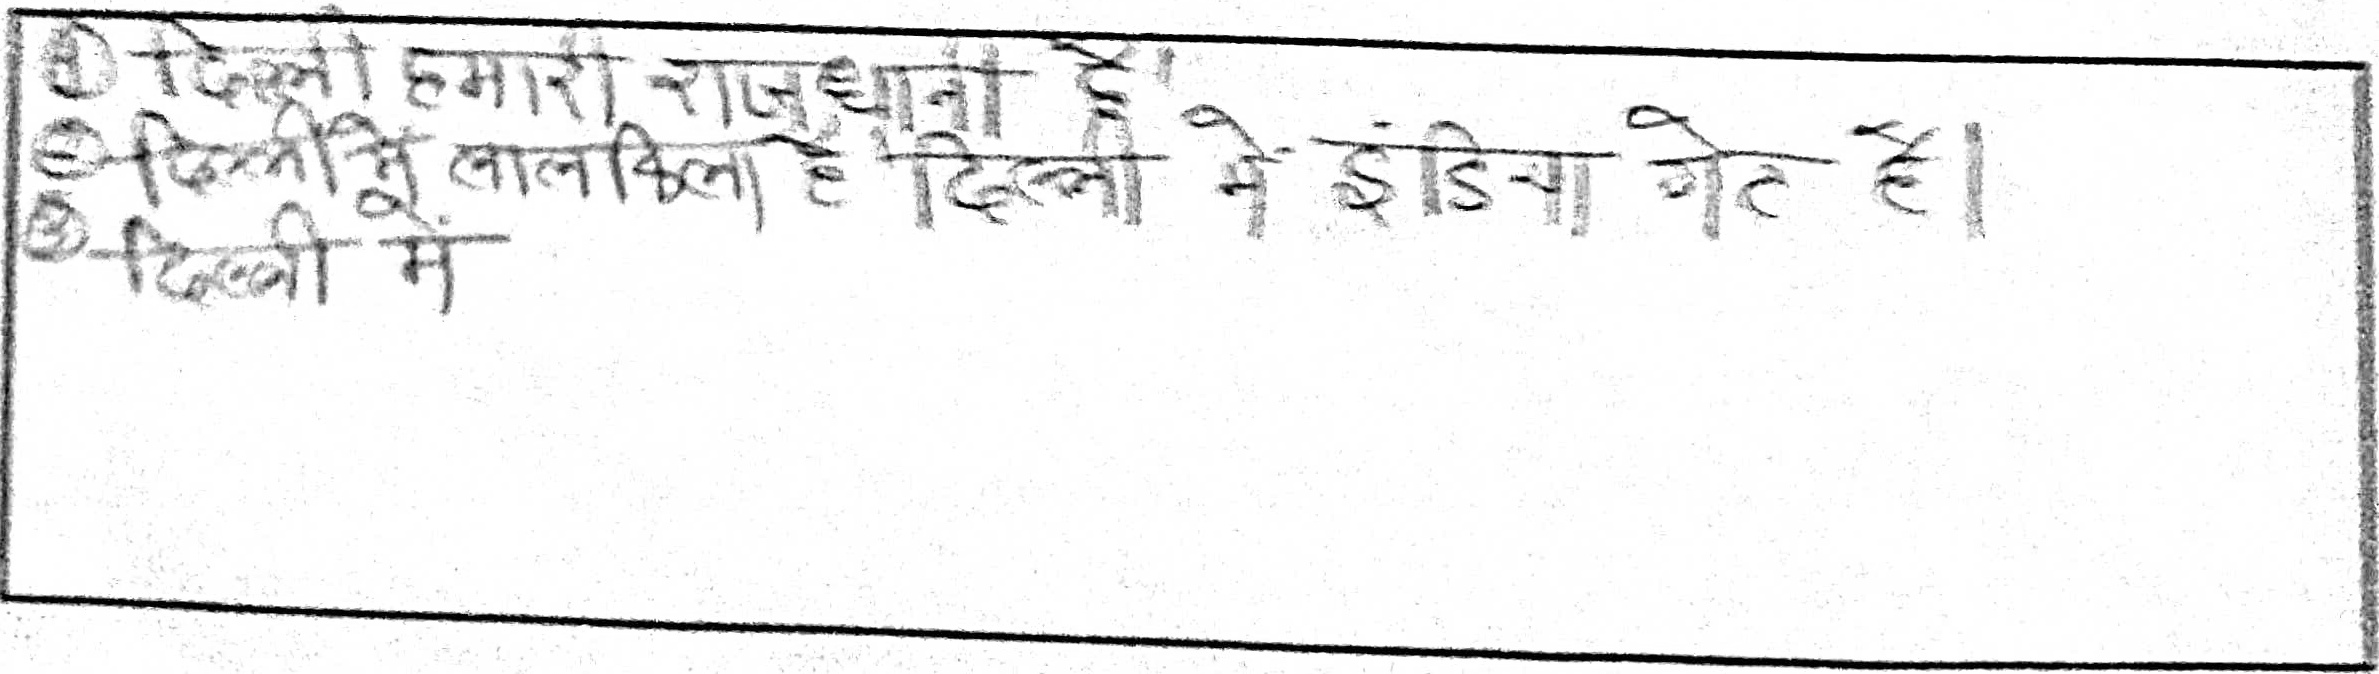 ① दिल्ली हमारी राजधानी है।
② दिल्ली में लाल किला है। दिल्ली में इंडिया गेट है।
③ दिल्ली में